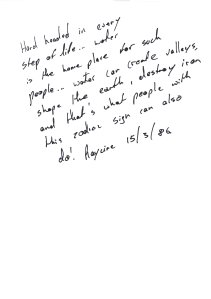 Hard headed in every
step of life.. water
is the home place for such
people.. water can create valleys,
shape the earth, destroy iron
and that's what people with
this zodiac sign can also
do! 15/3/86